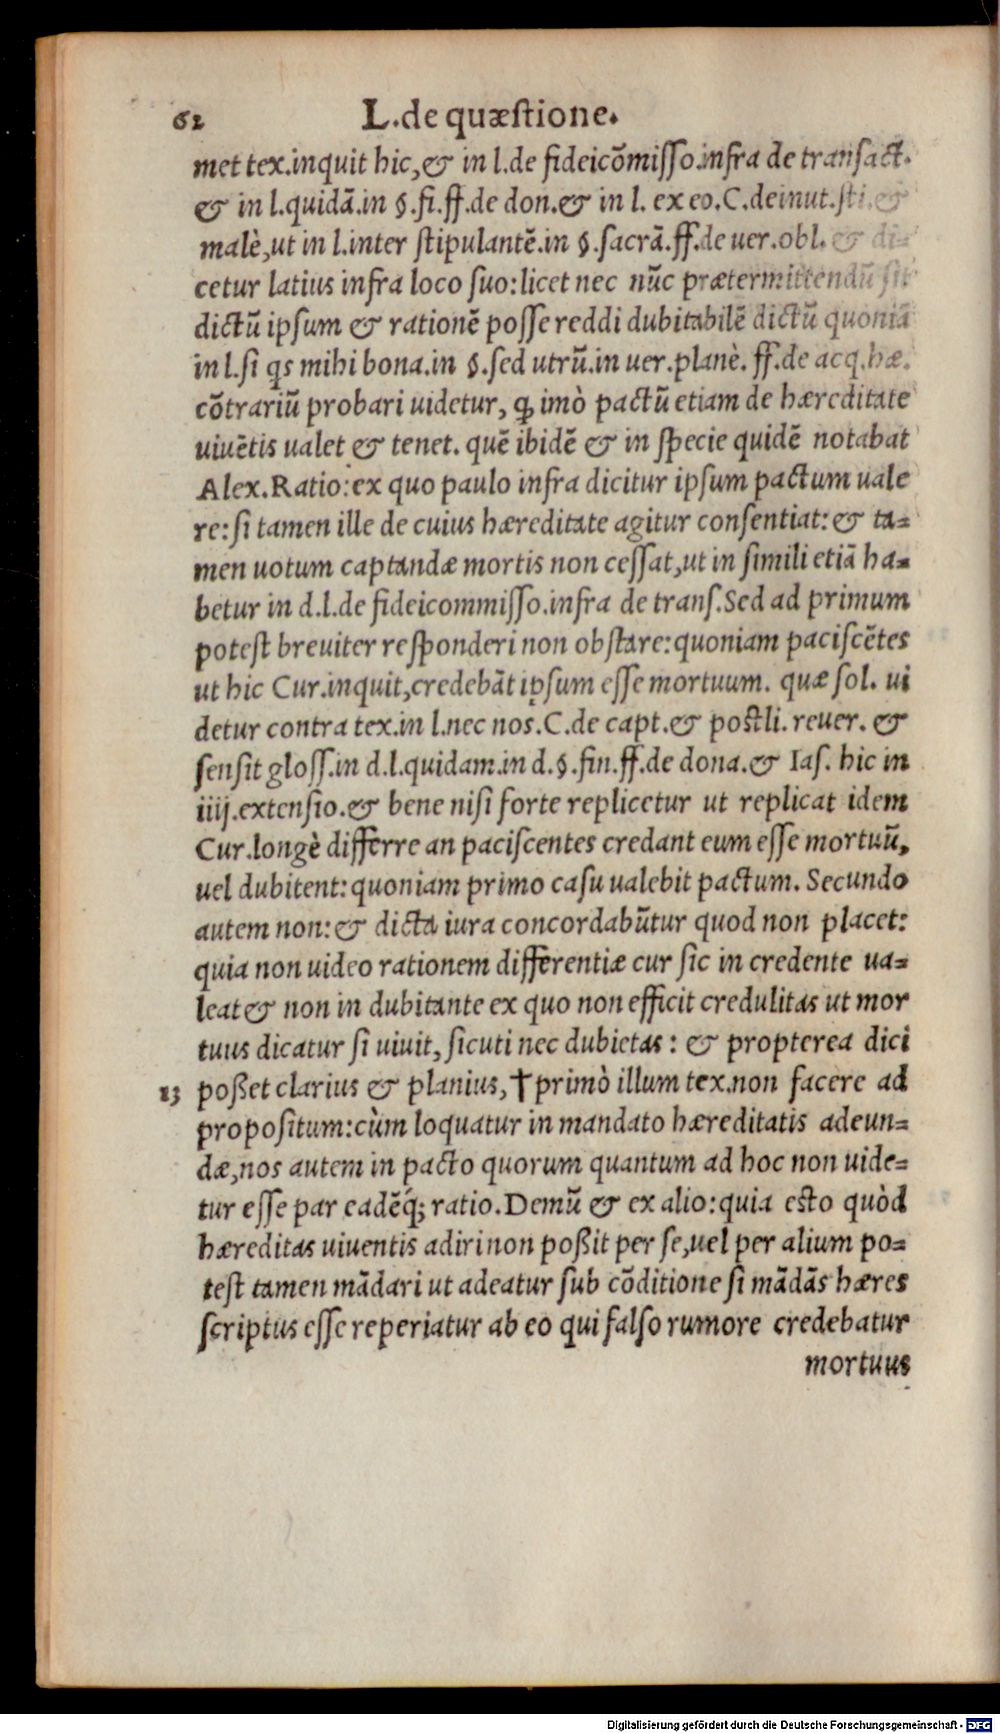 62 L.de quæſtione.
met tex.inquit hic,& in l.de fideicõmiſſo.infra de tranſact.
& in l.quidã.in §.fi.ff.de don.& in l. ex eo.C.deinut.ſti.&
malè,ut in l.inter ſtipulantẽ.in §.ſacrã.ff.de uer.obl. & di-
cetur latius infra loco ſuo:licet nec nũc prætermittendũ ſit
dictũ ipſum & rationẽ poſſe reddi dubitabilẽ dictũ quoniã
in l.ſi qs mihi bona.in §.ſed utrũ.in uer.planè. ff.de acq.hæ.
cõtrariũ probari uidetur, ꝙ imò pactũ etiam de hæreditate
uiuẽtis ualet & tenet. quẽ ibidẽ & in ſpecie quidẽ notabat
Alex.Ratio:ex quo paulo infra dicitur ipſum pactum uale
re:ſi tamen ille de cuius hæreditate agitur conſentiat:& ta-
men uotum captandæ mortis non ceſſat,ut in ſimili etiã ha-
betur in d.l.de fideicommiſſo.infra de tranſ.Sed ad primum
poteſt breuiter reſponderi non obſtare:quoniam paciſcẽtes
ut hic Cur.inquit,credebãt ipſum eſſe mortuum. quæ ſol. ui
detur contra tex.in l.nec nos.C.de capt.& poſtli.reuer. &
ſenſit gloſſ.in d.l.quidam.in d.§.fin.ff.de dona.& Iaſ. hic in
iiij.extenſio.& bene niſi forte replicetur ut replicat idem
Cur.longè differre an paciſcentes credant eum eſſe mortuũ,
uel dubitent:quoniam primo caſu ualebit pactum. Secundo
autem non:& dicta iura concordabũtur quod non placet:
quia non uideo rationem differentiæ cur ſic in credente ua-
leat & non in dubitante ex quo non efficit credulitas ut mor
tuus dicatur ſi uiuit, ſicuti nec dubietas : & propterea dici
13 poßet clarius & planius, †primò illum tex.non facere ad
propoſitum:cùm loquatur in mandato hæreditatis adeun-
dæ,nos autem in pacto quorum quantum ad hoc non uide-
tur eſſe par eadẽq́; ratio.Demũ & ex alio:quia eſto quòd
hæreditas uiuentis adiri non poßit per ſe,uel per alium po-
teſt tamen mãdari ut adeatur ſub cõditione ſi mãdãs hæres
ſcriptus eſſe reperiatur ab eo qui falſo rumore credebatur
mortuus
Digitalisierung gefördert durch die Deutsche Forschungsgemeinschaft - DFG